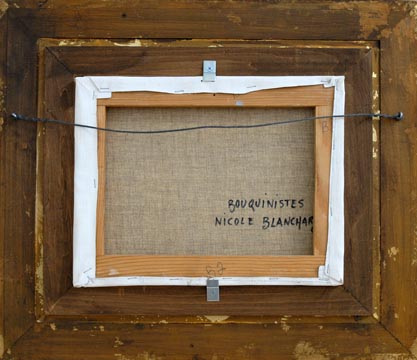 BOUQUINISTES
NICOLE BLANCHARD